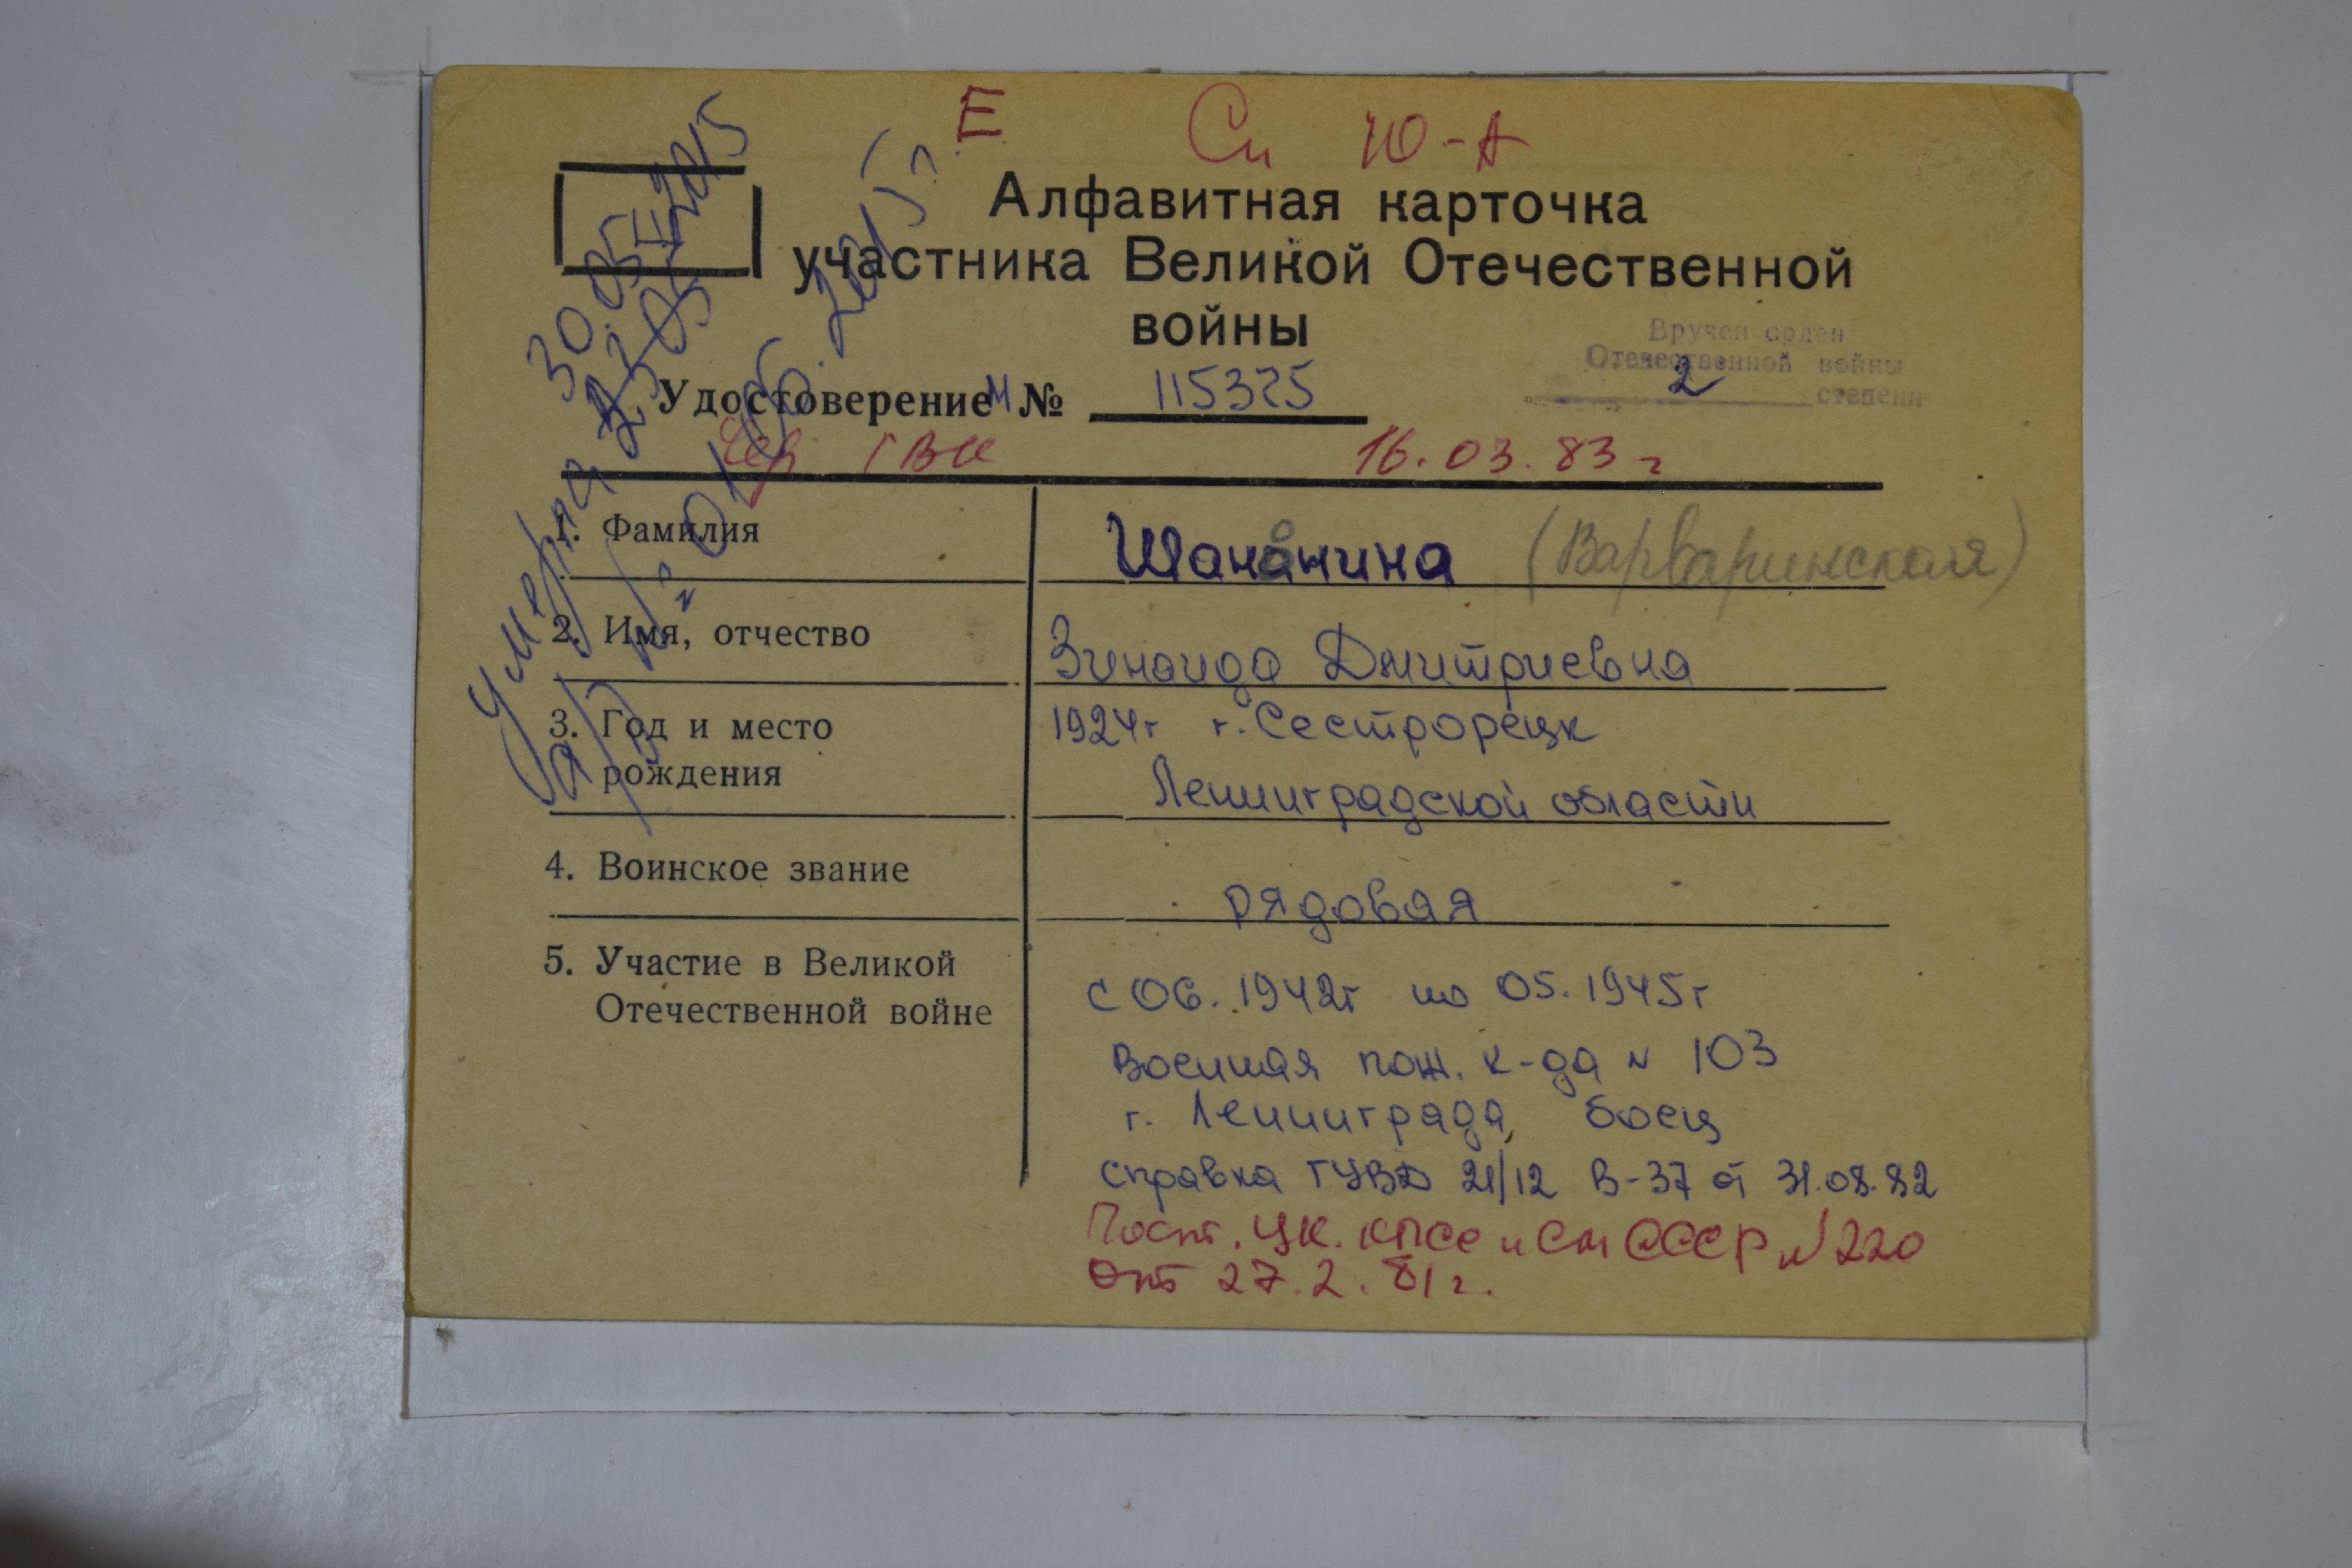 Е Сп Ю-А
Алфавитная карточка
участника Великой Отечественной
войны
Вручен орден
Отечественной войны
2 степени
Удостоверение И № 115325
ГВК 16.03.83 г
Умерла 30.05.2015
01.06.2015 г.
1. Фамилия Шананина (Варваринская)
2. Имя, отчество Зинаида Дмитриевна
3. Год и место 1924г г. Сестрорецк
рождения Ленинградской области
4. Воинское звание рядовая
5. Участие в Великой
Отечественной войне с 06.1942г по 05.1945г
Военная пож. к-да N 103
г. Ленинграда, боец
справка ГУВД 21/12 В-37 от 31.08.82
Пост. ЦК. КПСС и СМ СССР N 220
от 27.2.81г.